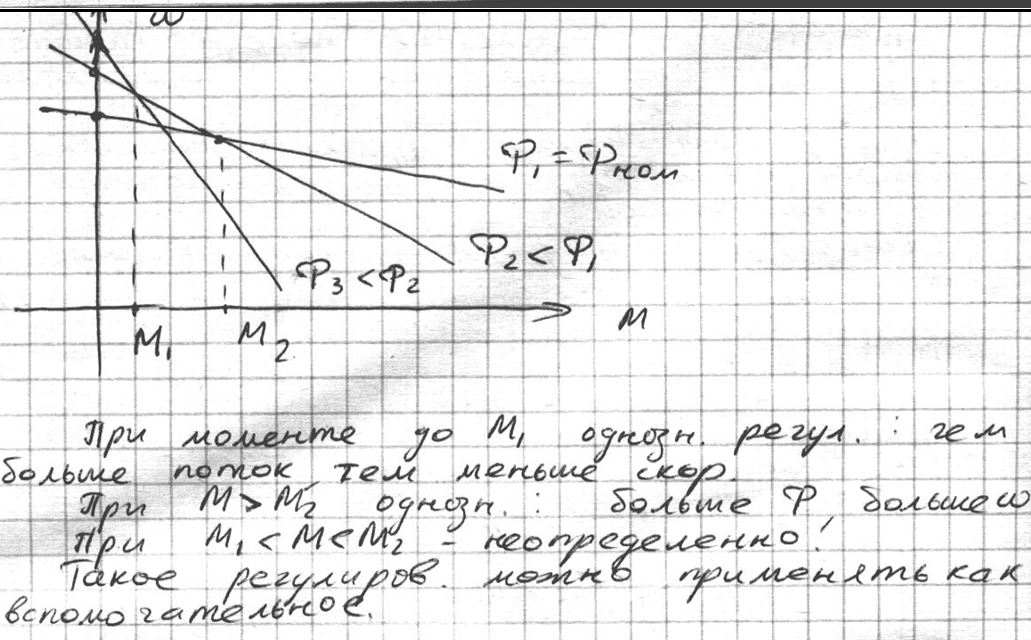 ω
Φ₁ = Φном
Φ₂ < Φ₁
Φ₃ < Φ₂
M
M₁ M₂
При моменте до M₁ однозн. регул. : чем
больше поток, тем меньше скор.
При M > M₂ однозн. : больше Φ, больше ω
При M₁ < M < M₂ - неопределенно.
Такое регулиров. можно применять как
вспомогательное.